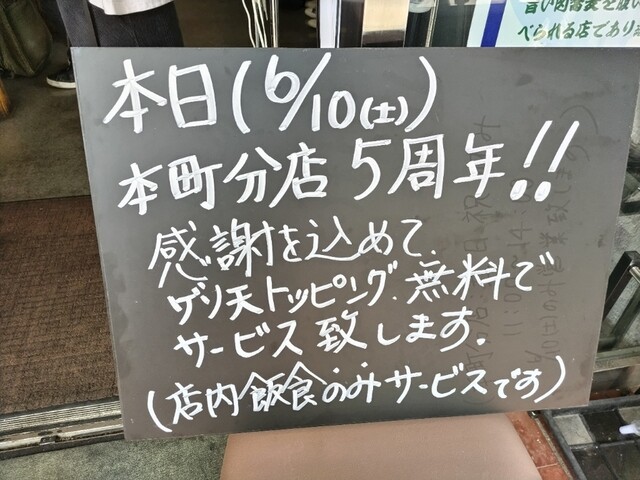 べられる店であり
本日(6/10(土))
本町分店5周年!!
感謝を込めて、
ゲソ天トッピング、無料で
サービス致します。
(店内飲食のみサービスです)